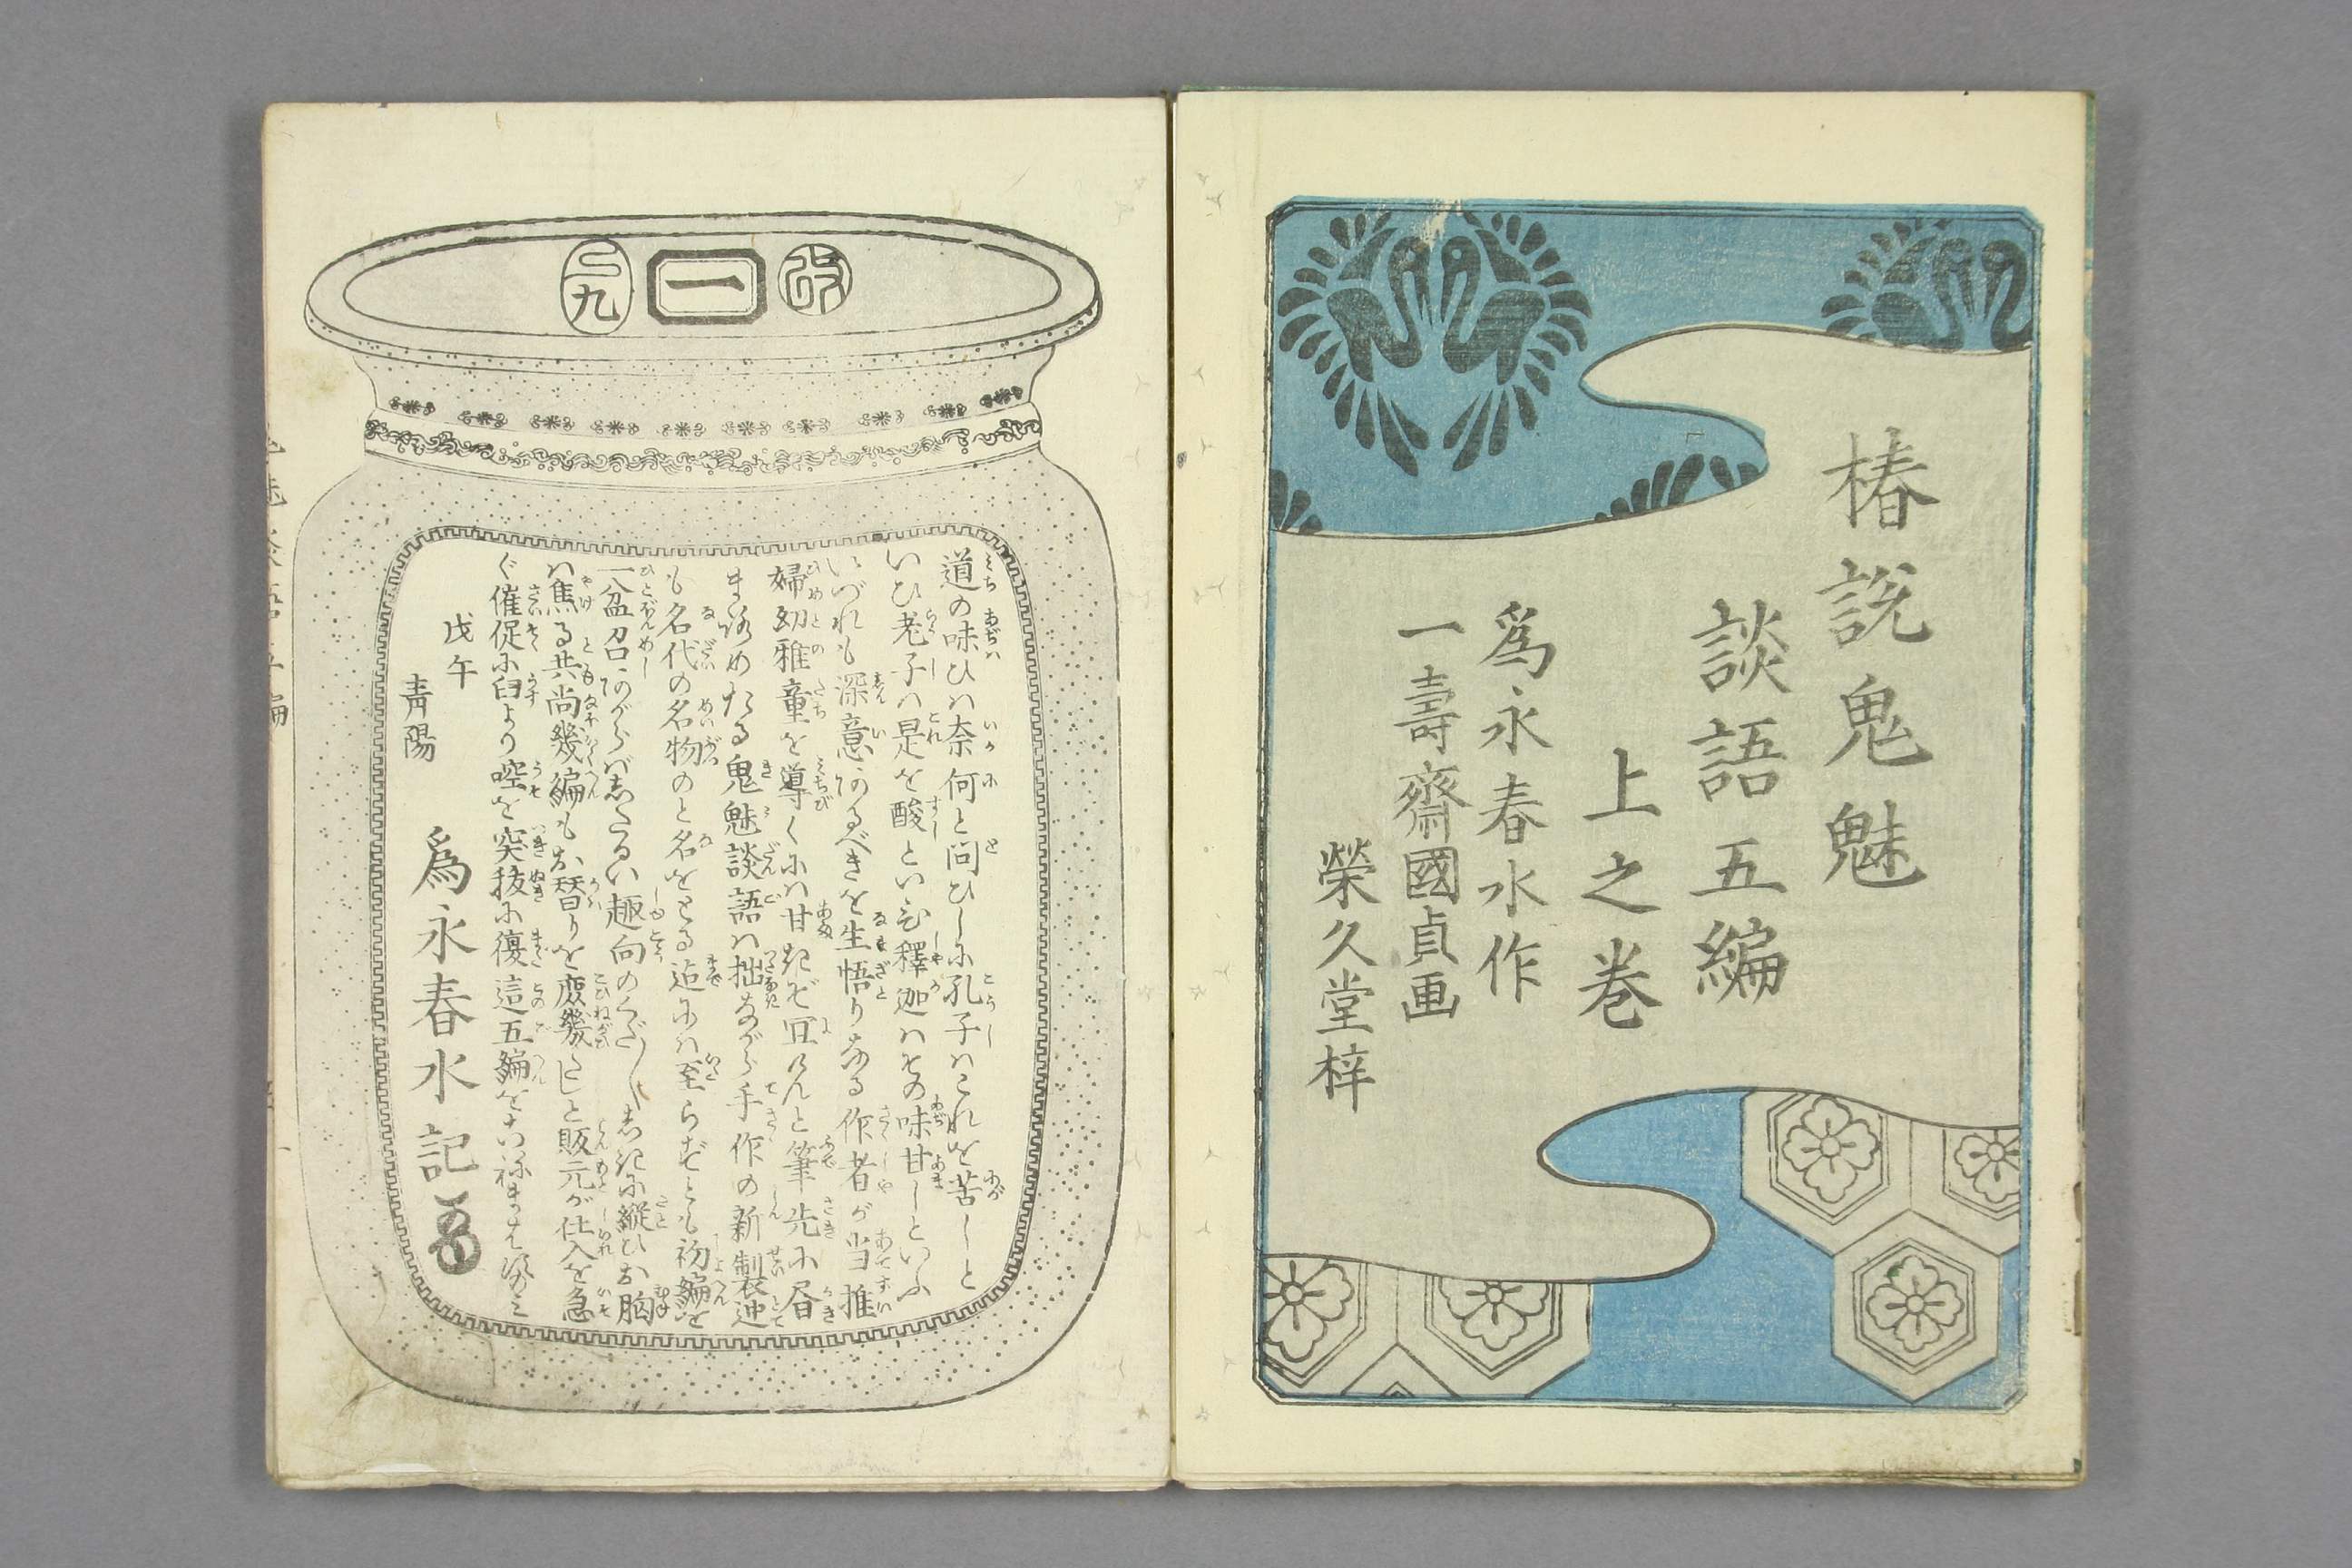 椿説鬼魅
談語五編
上之巻
為永春水作
一壽齋國貞画
榮久堂梓
改
一
二九
道の味ひハ奈何と問ひしに孔子ハこれを苦しと
いひ老子ハ是を酸といひ釋迦ハその味甘しといふ
いづれも深意あるべきを生悟りなる作者が当推
婦幼雅童を導くにハ甘きぞ宜けんと筆先に
たる鬼魅談語ハ拙ながら手作の新製迚
も名代の名物のと名をとる迄にハ至らずとも初編を
一盆召あがらバ趣向の
ハ焦る共尚幾編もお替りを庶幾しと販元が仕入を急
ぐ催促に臼より啌を突抜に復這五編を
戊午
青陽
為永春水記